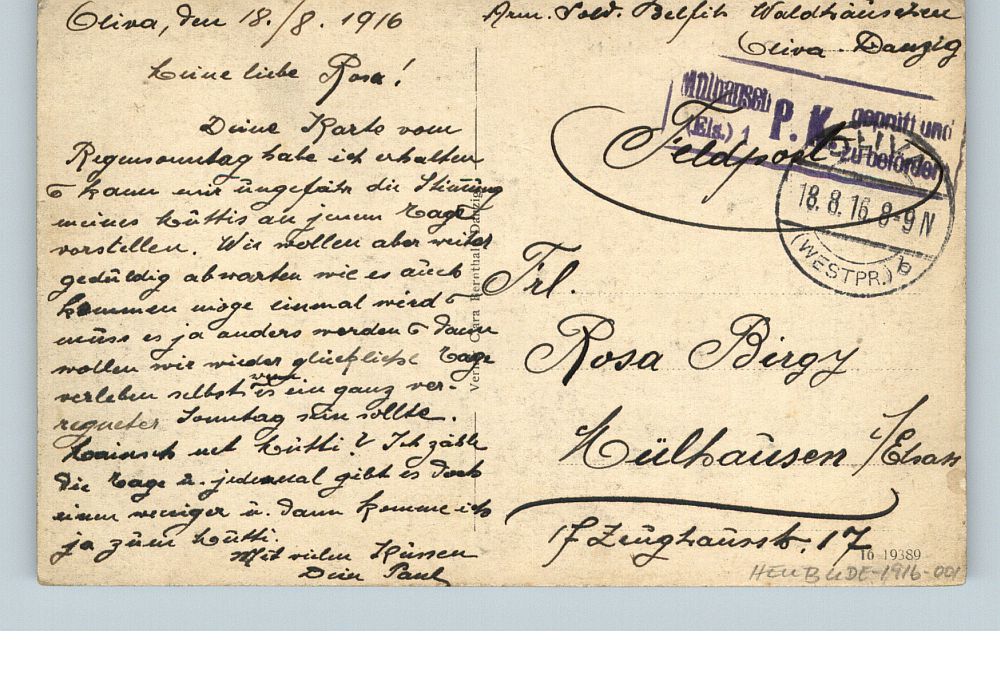 Oliva, den 18./8. 1916
Meine liebe Rosa!
Deine Karte vom
Regensonntag habe ich erhalten
& kann mir ungefähr die Stimung
meines Müttis an jenem Tage
vorstellen. Wir wollen aber weiter
geduldig abwarten wie es auch
kommen möge einmal wird
muss es ja anders werden & dann
wollen wir wieder glückliche Tage
verleben selbst wenn es ein ganz ver-
regneter Sonntag sein sollte.
net Mütti? Ich zähle
die Tage u. jedesmal gibt es doch
einen weniger u. dann komme ich
ja zum Mütti.
Mit vielen Küssen
Dein Paul
Arm. Sold. Belfih Waldhäuschen
Oliva-Danzig
Mülhausen
(Els.) 1
P. K.
geprüft und
zu befördern
Feldpost
OLIVA
18. 8. 16 8-9 N
(WESTPR.) b
Frl.
Rosa Birgy
Mülhausen i/Elsass
17 Zeughausstr. 17
Verlag Clara Bernthal, Danzig
10 19389
HEUBUDE-1916-001